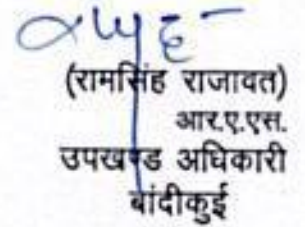 (रामसिंह राजावत)
आर.ए.एस.
उपखण्ड अधिकारी
बांदीकुई